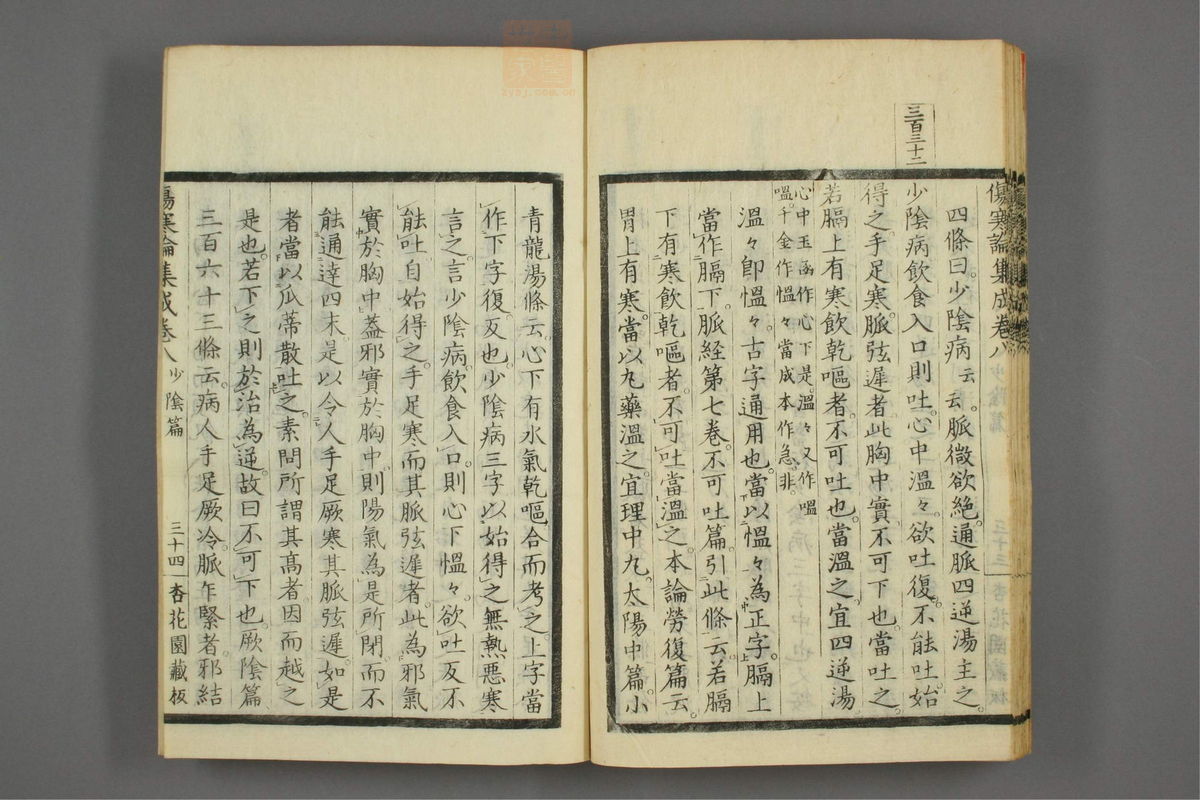 三百三十二
傷寒論集成卷八 少陰篇 三十三 杏花園藏板
四條曰少陰病云云脈微欲絕通脈四逆湯主之
少陰病飲食入口則吐心中溫々欲吐復不能吐始
得之手足寒脈弦遲者此胸中實不可下也當吐之
若膈上有寒飲乾嘔者不可吐也當溫之宜四逆湯
心中玉函作心下是溫々又作嗢
嗢千金作慍々當成本作急非
溫々卽慍々古字通用也當以慍々為正字膈上
當作膈下脈經第七卷不可吐篇引此條云若膈
下有寒飲乾嘔者不可吐當溫之本論勞復篇云
胃上有寒當以丸藥溫之宜理中丸太陽中篇小
青龍湯條云心下有水氣乾嘔合而考之上字當
作下字復反也少陰病三字以始得之無熱惡寒
言之言少陰病飲食入口則心下慍々欲吐反不
能吐自始得之手足寒而其脈弦遲者此為邪氣
實於胸中蓋邪實於胸中則陽氣為是所閉而不
能通達四末是以令人手足厥寒其脈弦遲如是
者當以瓜蒂散吐之素問所謂其高者因而越之
是也若下之則於治為逆故曰不可下也厥陰篇
三百六十三條云病人手足厥冷脈乍緊者邪結
傷寒論集成卷八 少陰篇 三十四 杏花園藏板
zysj.com.cn